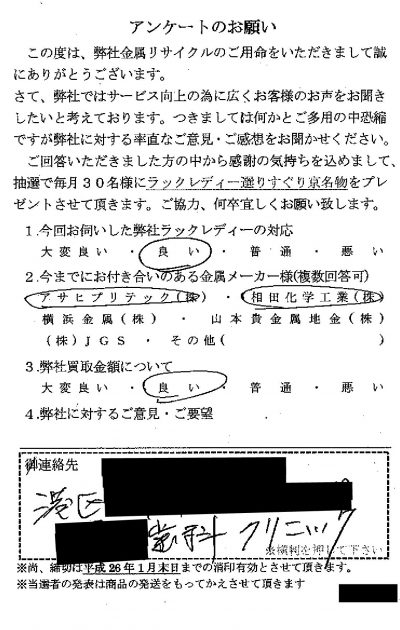 アンケートのお願い
この度は、弊社金属リサイクルのご用命をいただきまして誠
にありがとうございます。
さて、弊社ではサービス向上の為に広くお客様のお声をお聞き
したいと考えております。つきましては何かとご多用の中恐縮
ですが弊社に対する率直なご意見・ご感想をお聞かせください。
ご回答いただきました方の中から感謝の気持ちを込めまして、
抽選で毎月30名様にラックレディー選りすぐり京名物をプレ
ゼントさせて頂きます。ご協力、何卒宜しくお願い致します。
1.今回お伺いした弊社ラックレディーの対応
大変良い ・ 良い ・ 普通 ・ 悪い
2.今までにお付き合いのある金属メーカー様(複数回答可)
アサヒプリテック(株) ・ 相田化学工業(株)
横浜金属(株) ・ 山本貴金属地金(株)
(株)JGS ・ その他( )
3.弊社買取金額について
大変良い ・ 良い ・ 普通 ・ 悪い
4.弊社に対するご意見・ご要望
御連絡先
港区
歯科 クリニック
※横判を押して下さい
※尚、締切は平成26年1月末日までの消印有効とさせて頂きます。
※当選者の発表は商品の発送をもってかえさせて頂きます